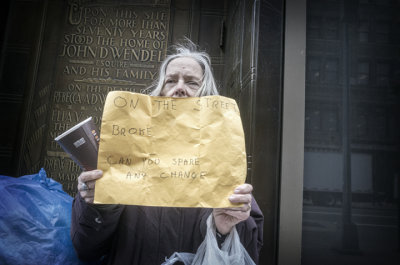 UPON THIS SITE
FOR MORE THAN
SEVENTY YEARS
STOOD THE HOME
OF
JOHN D. WENDEL
ESQUIRE
AND HIS FAMILY
ON THE STREET
BROKE
CAN YOU SPARE
ANY CHANGE